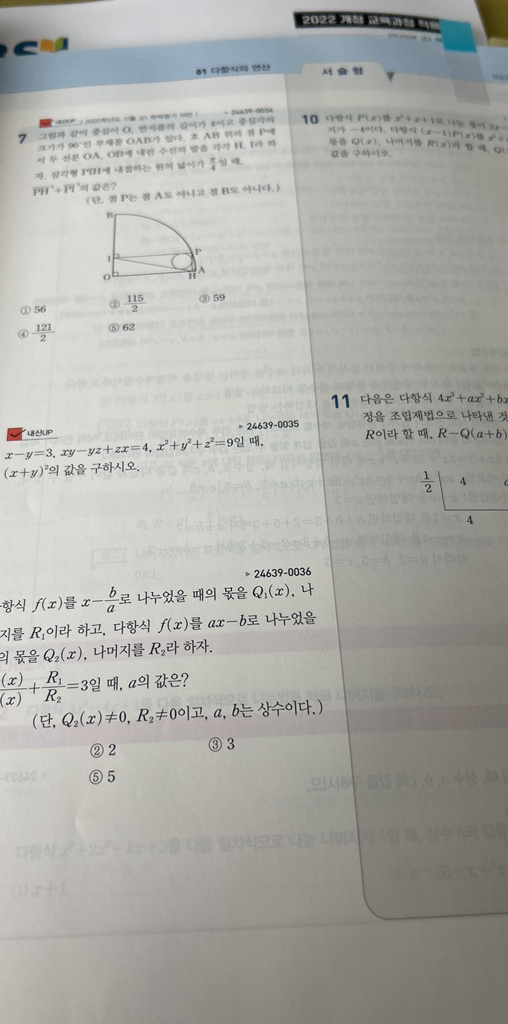 2022 개정 교육과정 적용
01 다항식의 연산
서술형
7
내신UP
24639-0034
그림과 같이 중심이 O, 반지름의 길이가 4이고 중심각의
크기가 90°인 부채꼴 OAB가 있다. 호 AB 위의 점 P에
서 두 선분 OA, OB에 내린 수선의 발을 각각 H, I라 하
자. 삼각형 PIH에 내접하는 원의 넓이가 π/4일 때,
PH³+PI³의 값은?
(단, 점 P는 점 A도 아니고 점 B도 아니다.)
B
I
P
O
H
A
① 56
② 115/2
③ 59
④ 121/2
⑤ 62
내신UP
▶ 24639-0035
x-y=3, xy-yz+zx=4, x²+y²+z²=9일 때,
(x+y)²의 값을 구하시오.
▶ 24639-0036
항식 f(x)를 x-b/a로 나누었을 때의 몫을 Q₁(x), 나
지를 R₁이라 하고, 다항식 f(x)를 ax-b로 나누었을
의 몫을 Q₂(x), 나머지를 R₂라 하자.
(x)/(x)+R₁/R₂=3일 때, a의 값은?
(단, Q₂(x)≠0, R₂≠0이고, a, b는 상수이다.)
② 2
③ 3
⑤ 5
10 다항식 P(x)를 x²+x+1로 나눈
지가 -4이다. 다항식 (x-1)P(x)를
몫을 Q(x), 나머지를 R(x)라 할 때,
값을 구하시오.
11 다음은 다항식 4x³+ax²+bx
정을 조립제법으로 나타낸 것
R이라 할 때, R-Q(a+b)
1/2
4
4